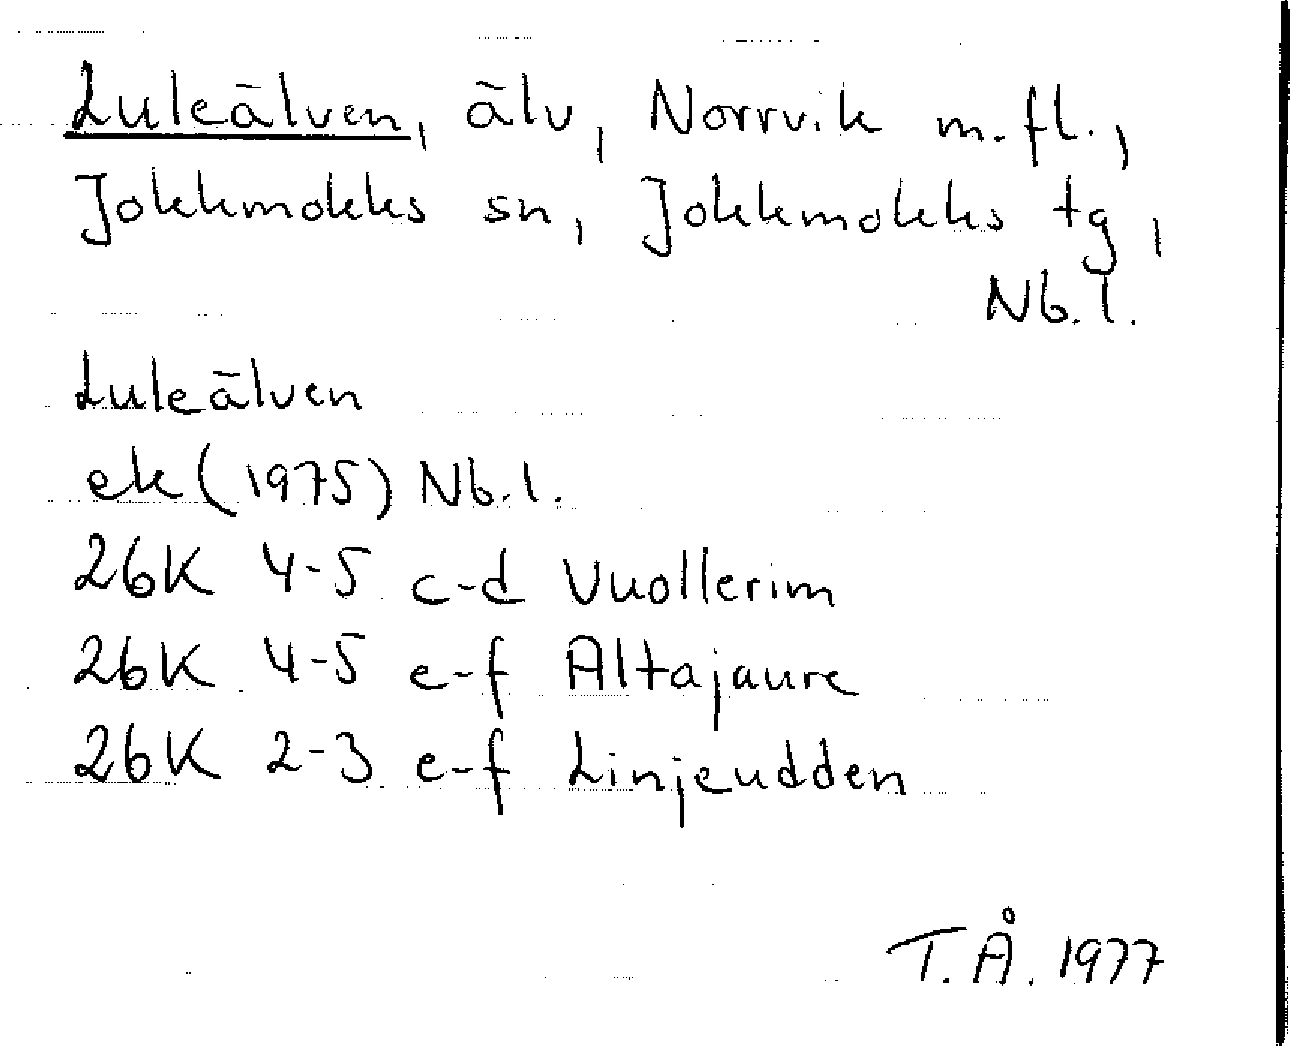 Luleälven, älv, Norrvik m.fl.,
Jokkmokks sn, Jokkmokks tg,
Nb.l.
Luleälven
ek (1975) Nb.l.
26K 4-5 c-d Vuollerim
26K 4-5 e-f Altajaure
26K 2-3 e-f Linjeudden
T.Å. 1977